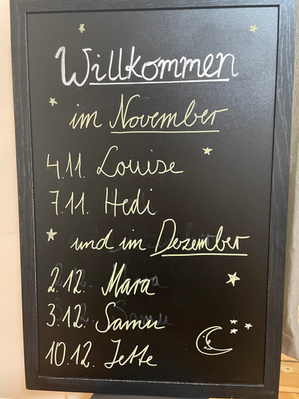 Willkommen
im November
4.11. Louise
7.11. Hedi
und im Dezember
2.12. Mara
3.12. Samu
10.12. Jette